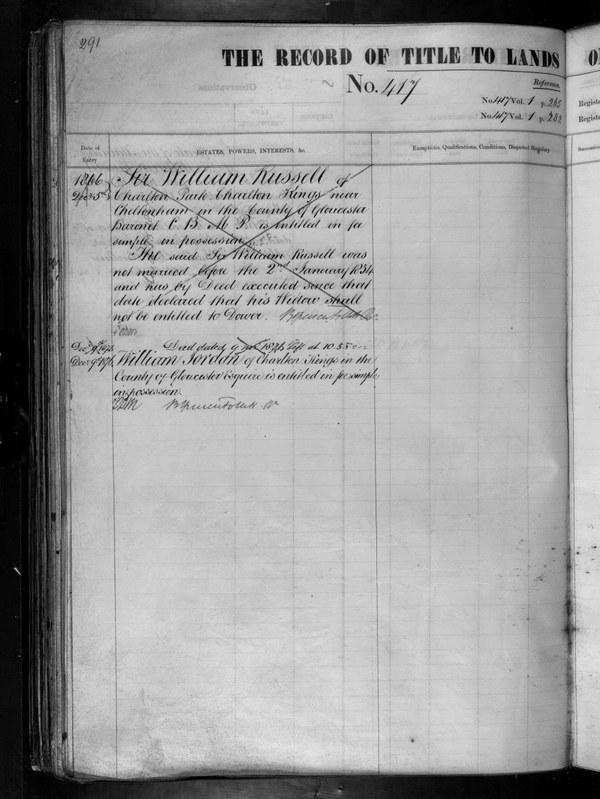 291
THE RECORD OF TITLE TO LANDS
No. 417
Reference.
No. 417 Vol. 1 p. 265
No. 417 Vol. 1 p. 282
Date of Entry
ESTATES, POWERS, INTERESTS, &c.
Exceptions, Qualifications, Conditions, Disputed Registry
1866 Sir William Russell of
5 Charlton Park Charlton Kings near
Cheltenham in the County of Gloucester
Baronet C B. M P. is entitled in fee
simple in possession
The said Sir William Russell was
not married before the 2nd January 1834
and has by Deed executed since that
date declared that his Widow shall
not be entitled to Dower.
Deed dated 9 left at 10.55
Decr 9th 1876 William Jordan of Charlton Kings in the
County of Gloucester Esquire is entitled in fee simple
in possession.
O
Registe
Registe